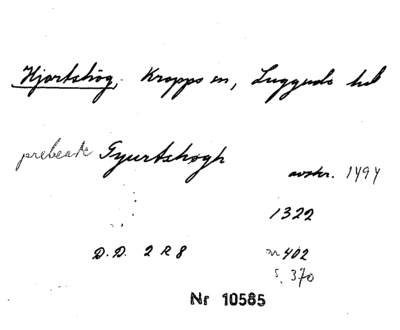 Hjortshög, Kropps sn, Luggude hd
prebende Gyurtshøgh
avskr. 1494
1322
D.D. 2 R 8 nr 402
s. 370
Nr 10585